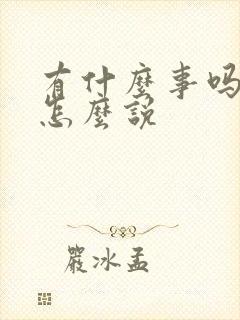 有什麼事吗
怎麼説
嚴冰孟